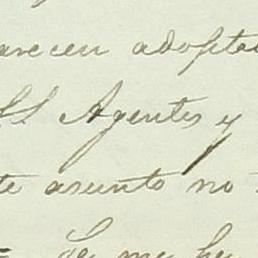 arecen adopta
SS Agentes y
te asunto no
Se me ha